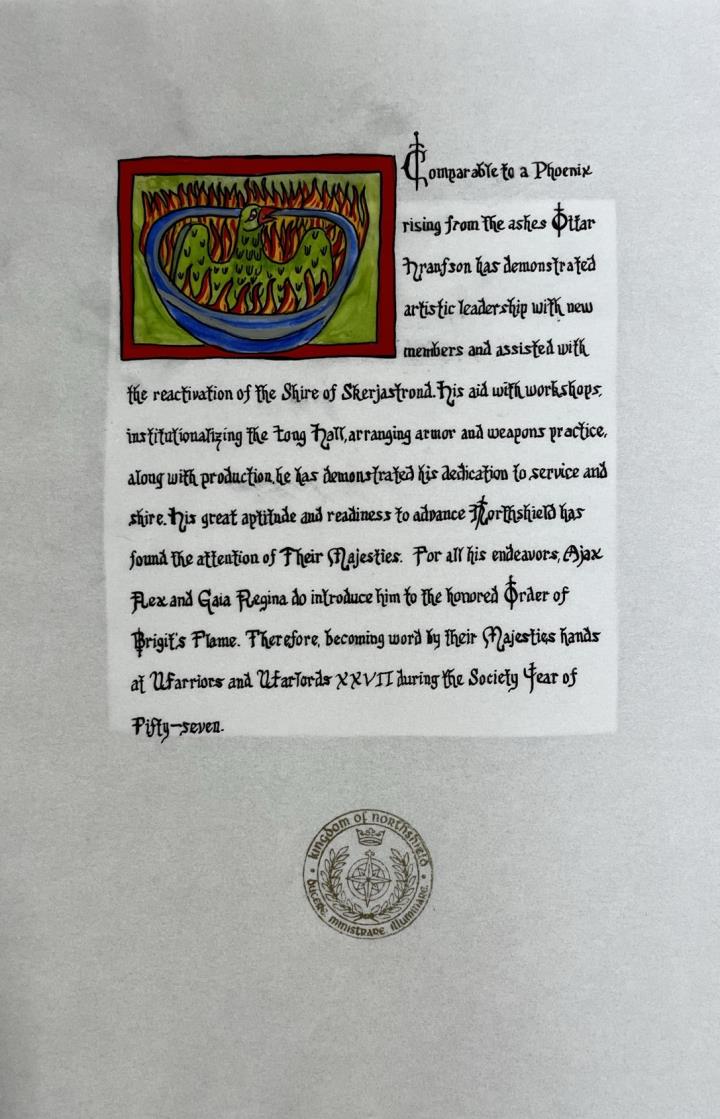 Comparable to a Phoenix
rising from the ashes Ottar
Hranfson has demonstrated
artistic leadership with new
members and assisted with
the reactivation of the Shire of Skerjastrond. His aid with workshops,
institutionalizing the Long Hall, arranging armor and weapons practice,
along with production, he has demonstrated his dedication to service and
shire. His great aptitude and readiness to advance Northshield has
found the attention of Their Majesties. For all his endeavors, Ajax
Rex and Gaia Regina do introduce him to the honored Order of
Brigit's Flame. Therefore, becoming word by their Majesties hands
at Warriors and Warlords XXVII during the Society Year of
Fifty-seven.
kingdom of northshield
ducere ministrare illuminare